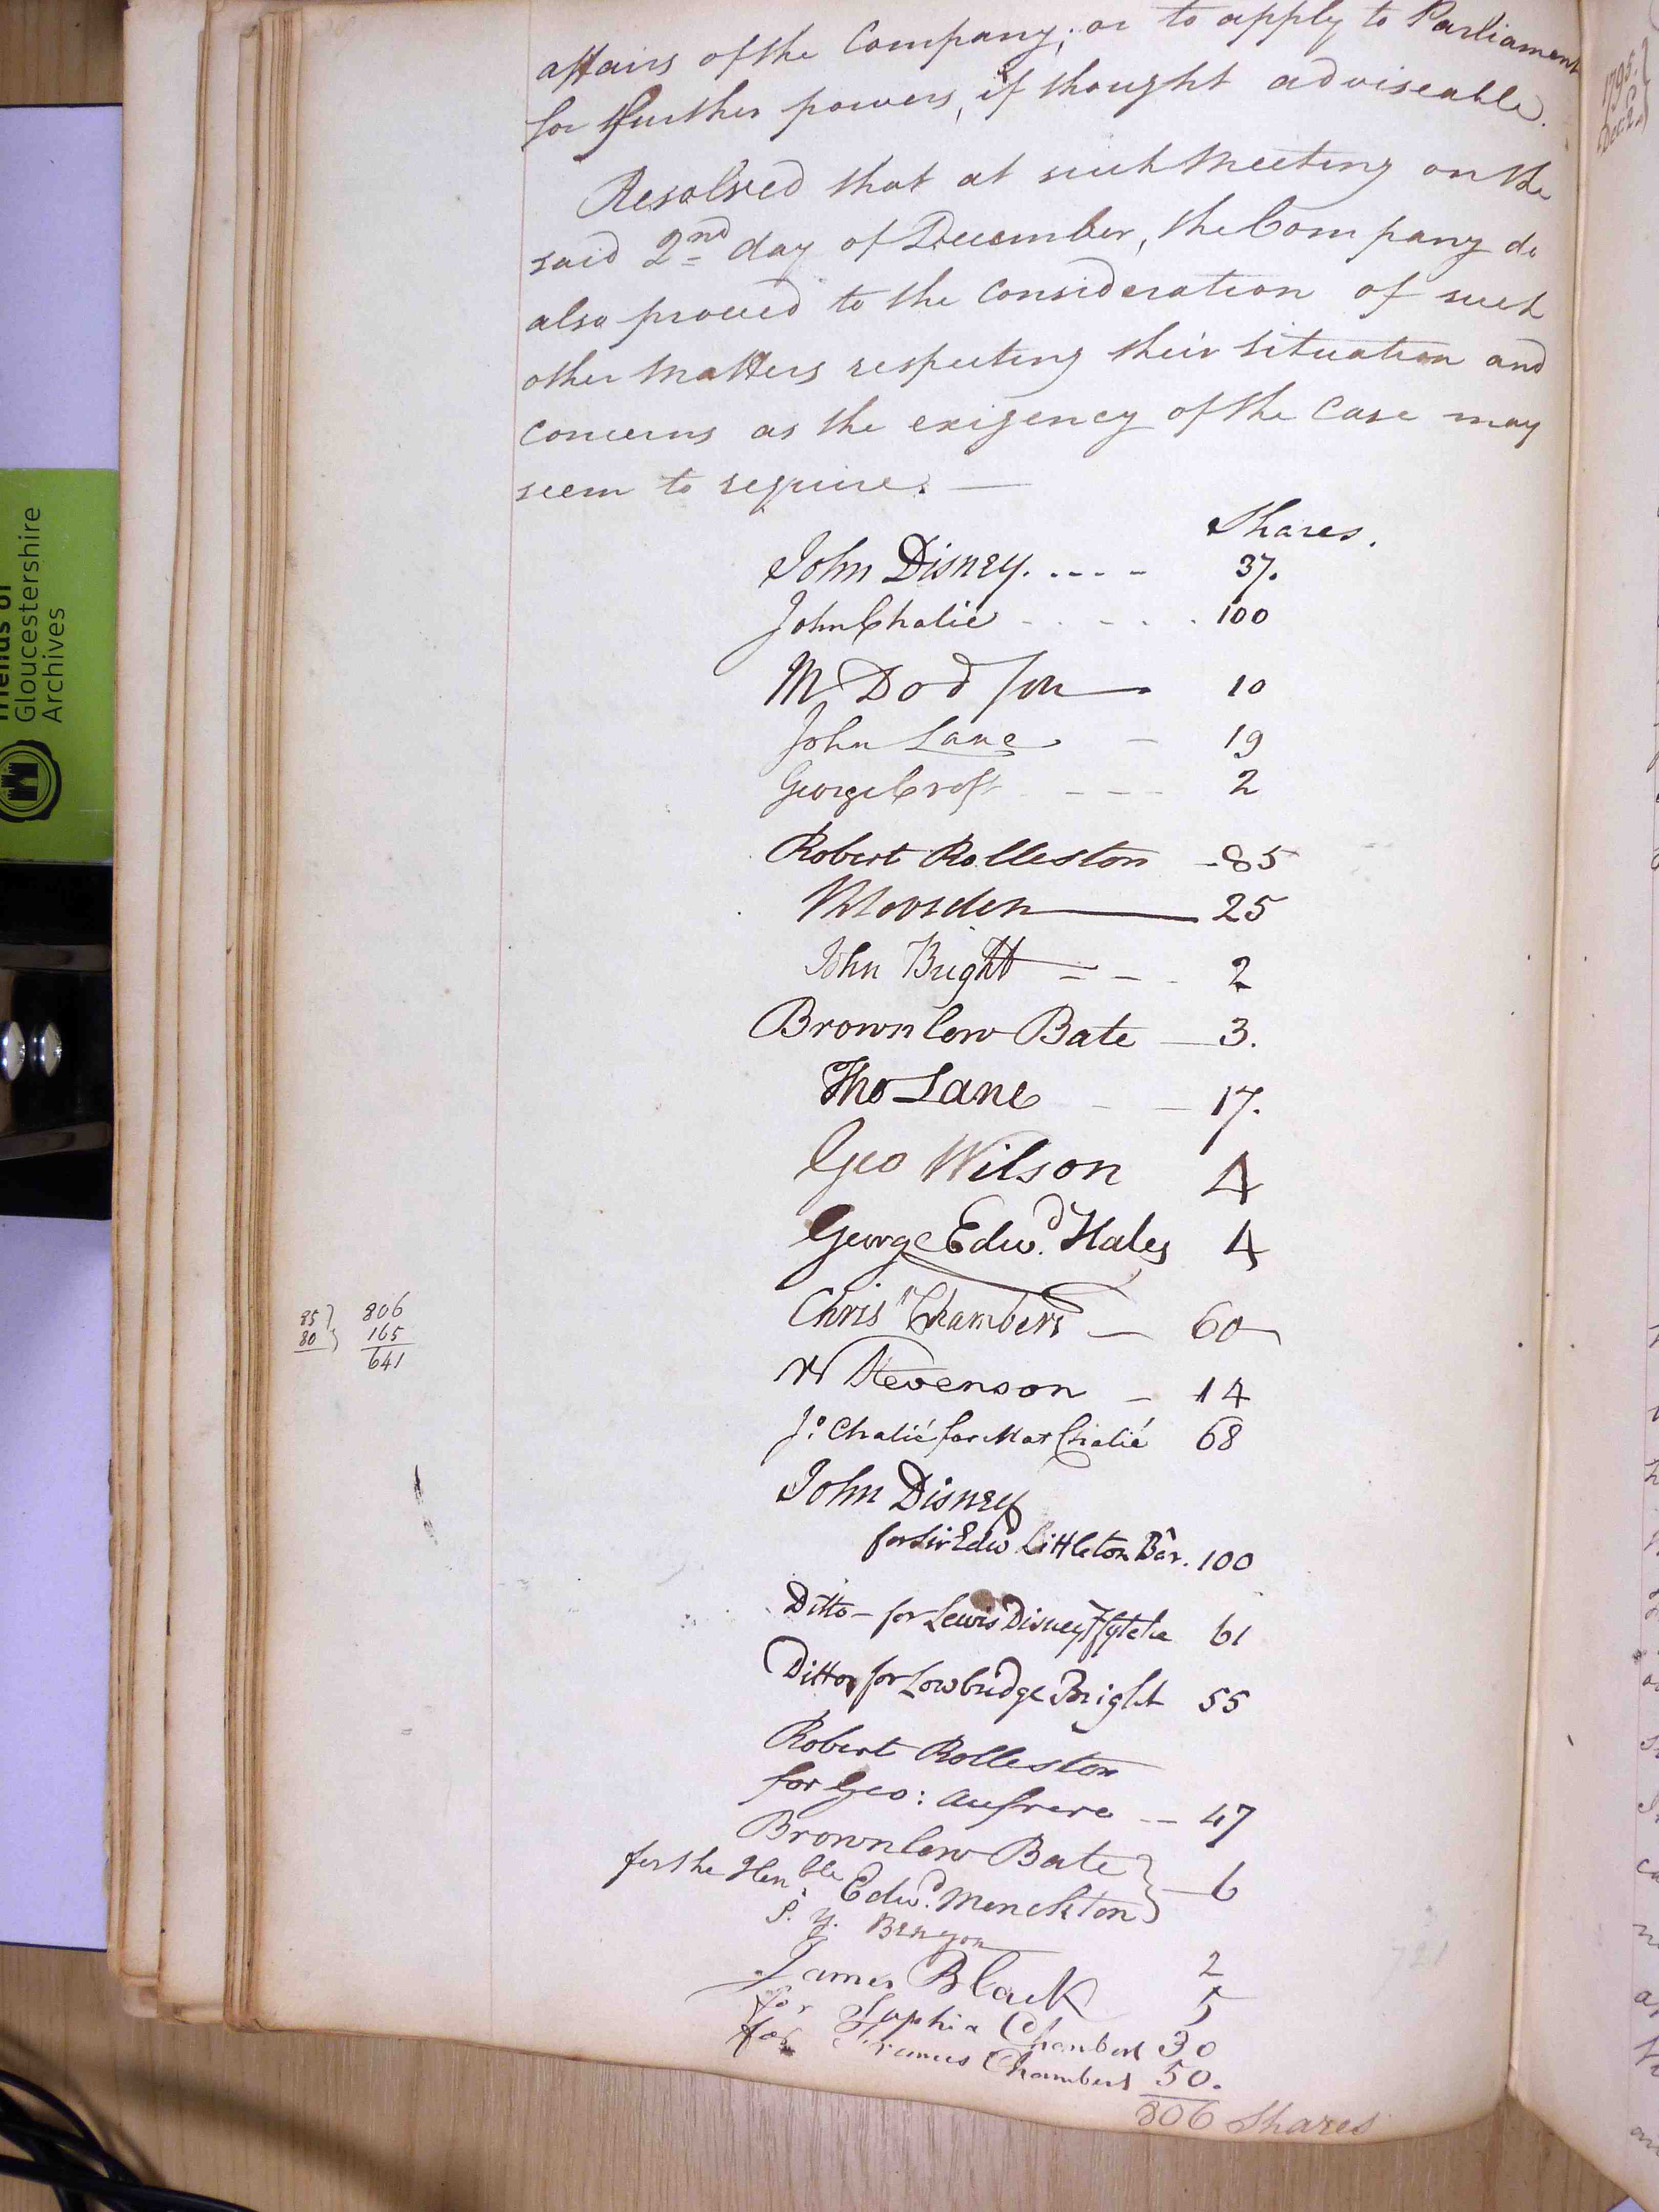 affairs of the Company; or to apply to Parliament
for further powers, if thought adviseable.
Resolved that at such Meeting on the
said 2nd day of December, the Company do
also proceed to the Consideration of such
other Matters respecting their Situation and
Concerns as the exigency of the Case may
seem to require. —
Shares.
John Disney. .... 37.
John Chalié ..... 100
M Dodson — 10
John Lane — 19
George Croft --- 2
Robert Rolleston - 85
Moorsden — 25
John Bright — - - 2
Brownlow Bate — 3.
Tho Lane - - 17.
Geo Wilson 4
George Edwd. Hales 4
Chrisr Chambers — 60
W Stevenson — 14
Jo: Chalié for Mat Chalié 68
John Disney
for Sir Edwd Littleton Bar. 100
Ditto - for Lewis Disney Ffytche 61
Ditto for Lowbridge Bright 55
Robert Rolleston
for Geo: Aufrere -- 47
Brownlow Bate
for the Honble Edwd. Monckton } — 6
S. Y. Benyon 2
James Black 5
for Sophia Chambers 30
for Frances Chambers 50.
806 Shares
85 } 806
80 } 165
641
721
1795.
Decr. 2d
Friends of
Gloucestershire
Archives